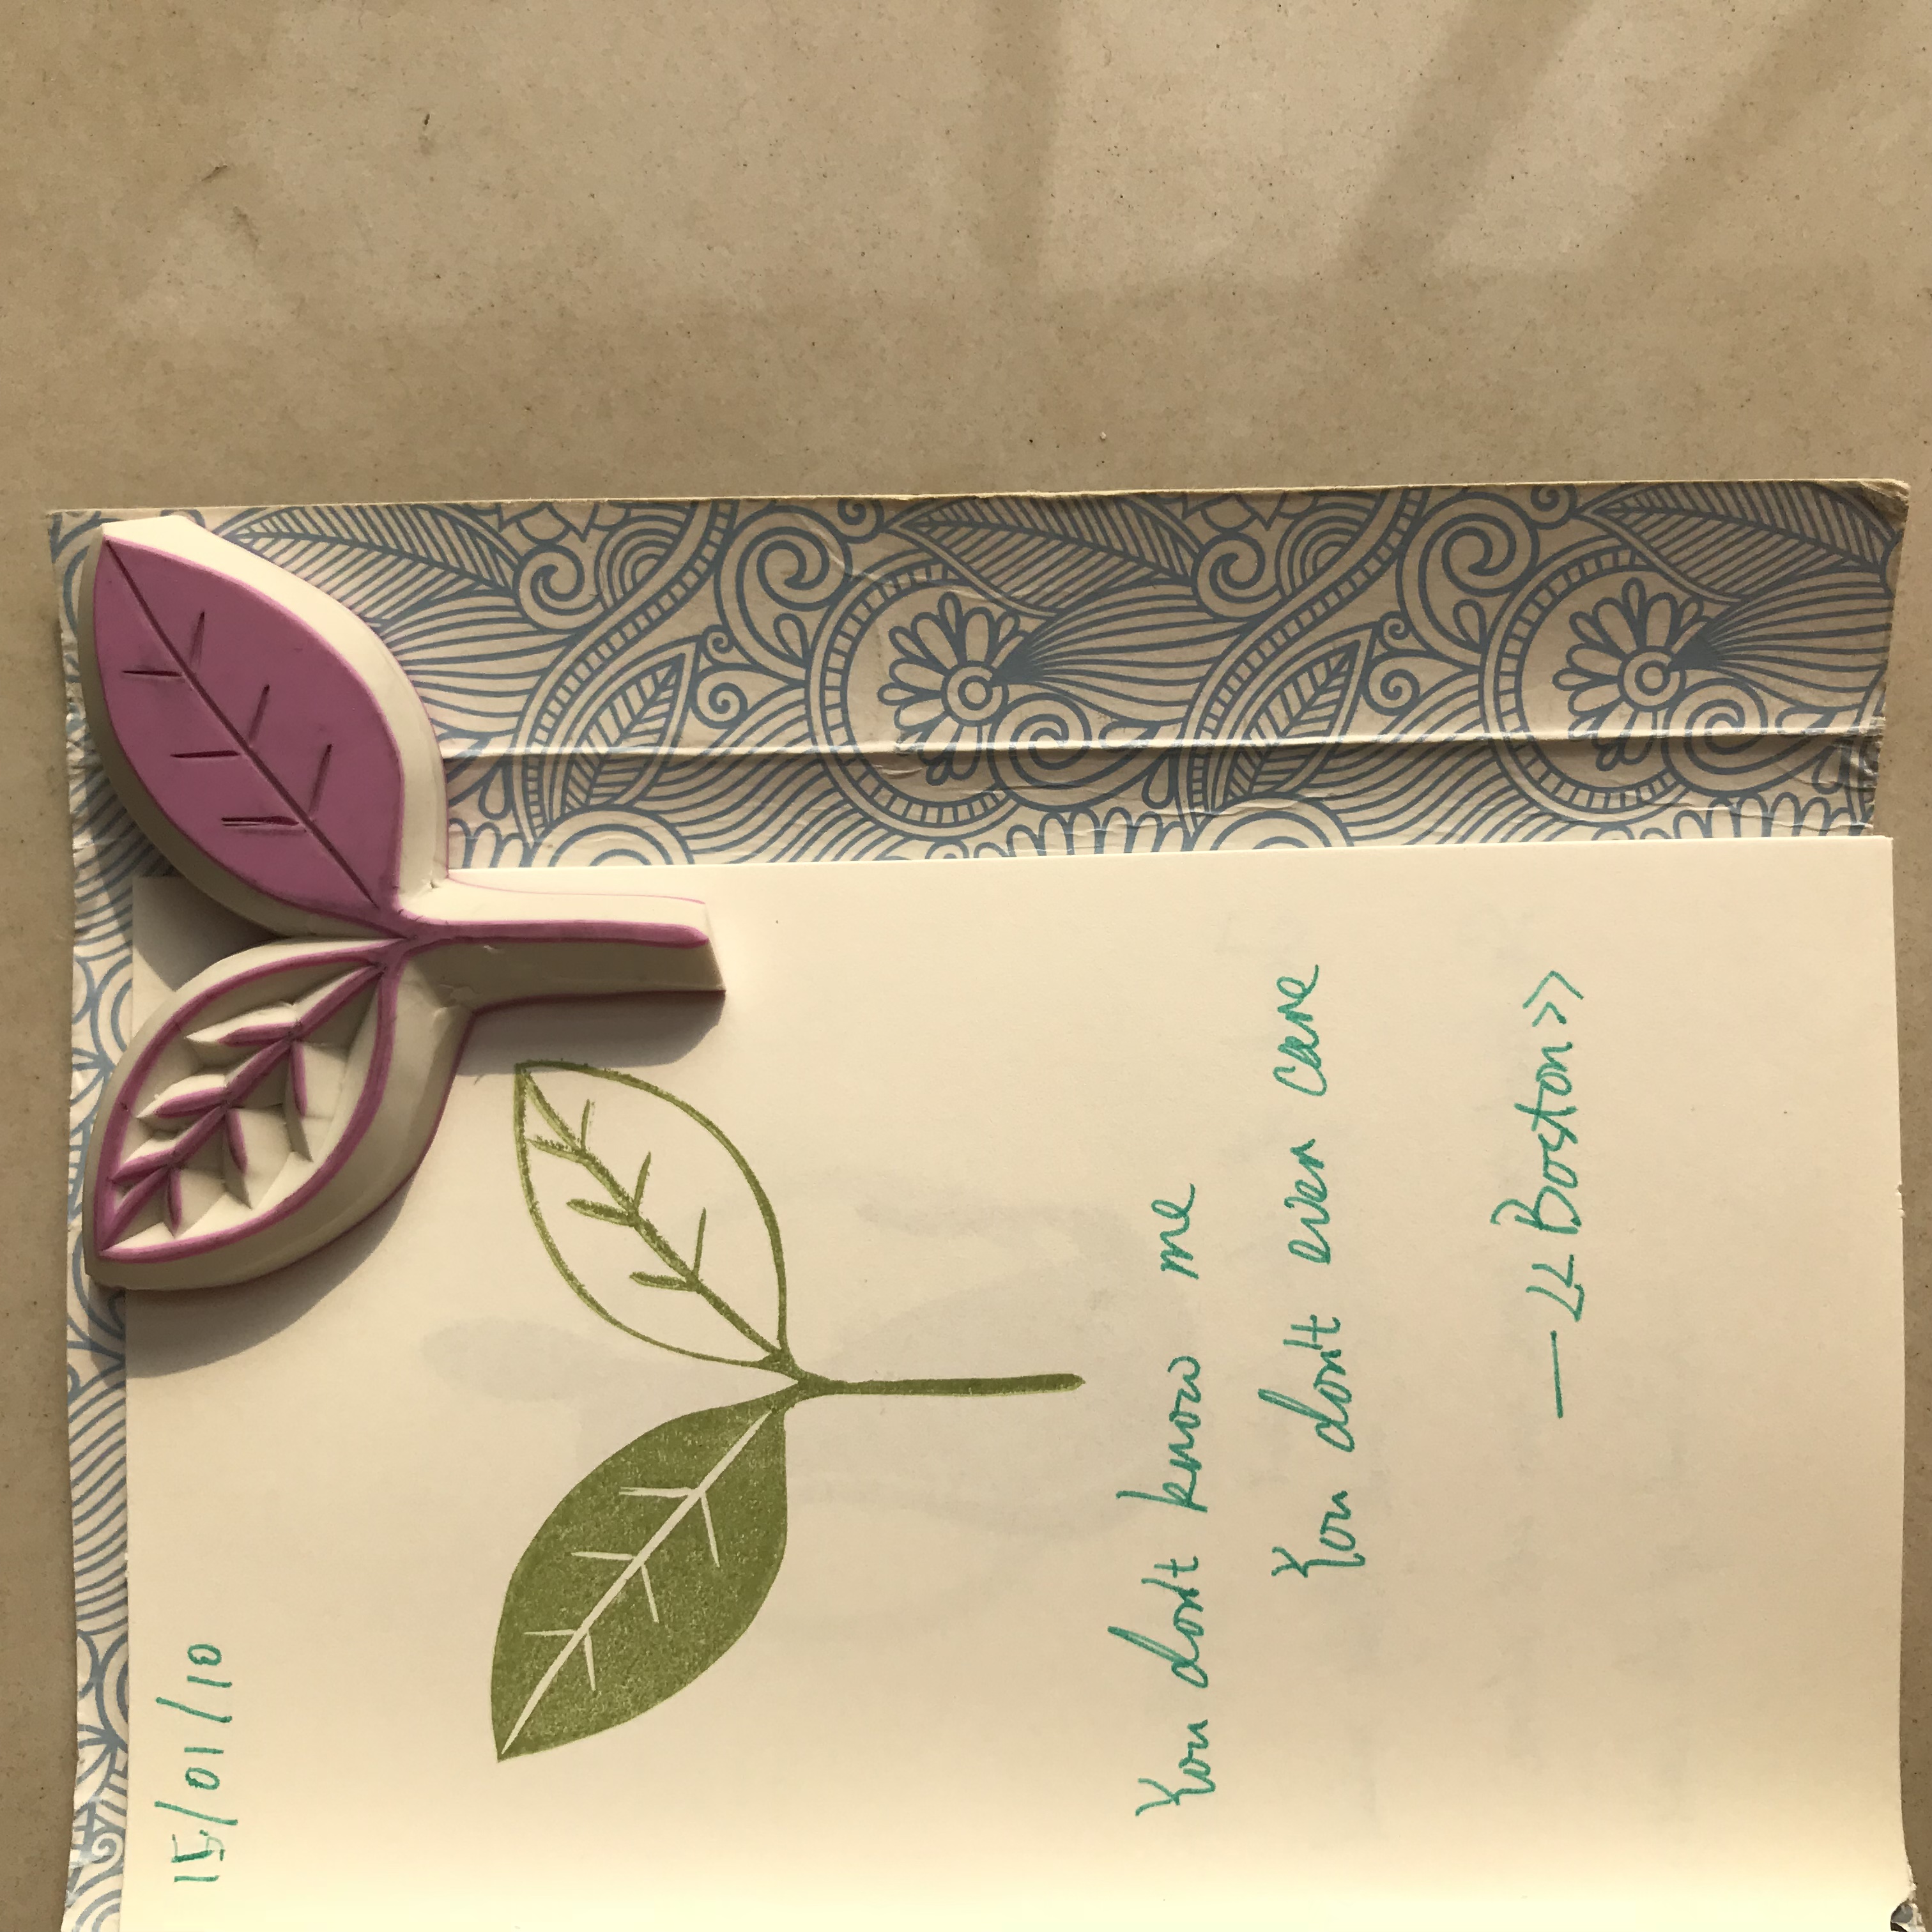 15/01/10
You don't know me
You don't even care
—《Boston》